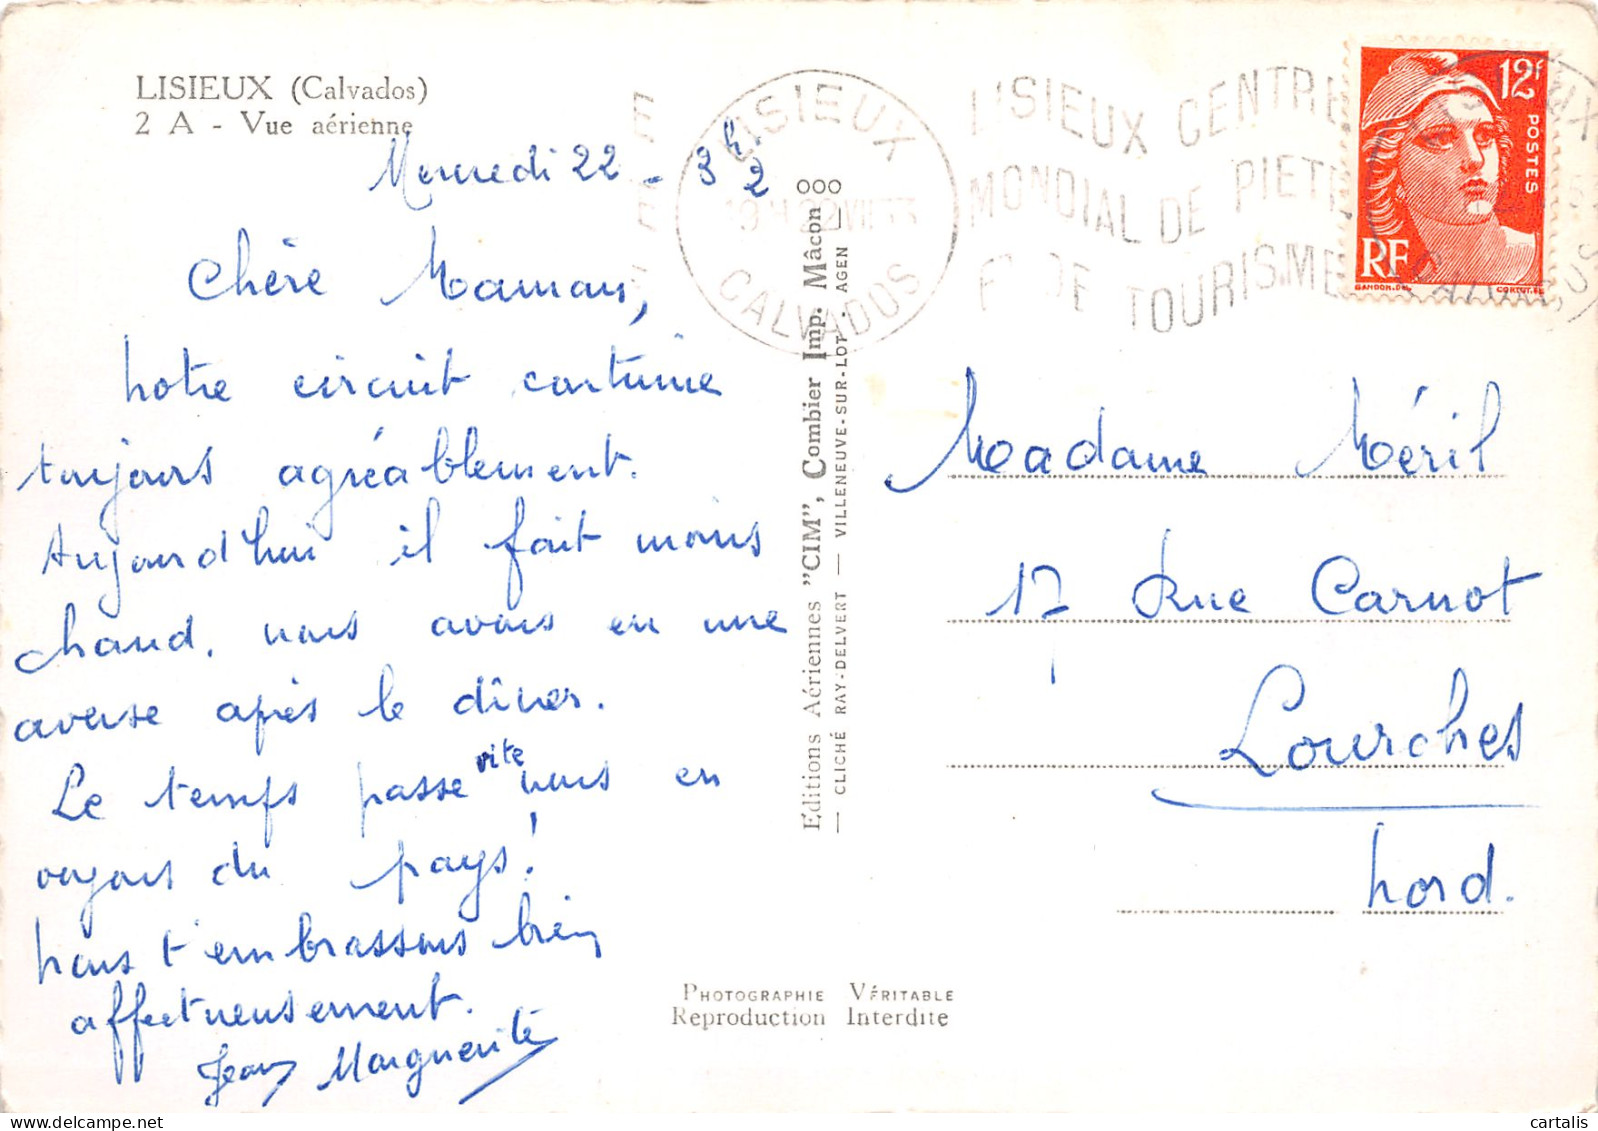 LISIEUX (Calvados)
2 A - Vue aérienne
Mercredi 22 - 3h 2
Chère Maman,
notre circuit continue
toujours agréablement.
Aujourd'hui il fait moins
chaud, nous avons eu une
averse après le dîner.
Le temps passe vite nous en
voyons du pays!
Nous t'embrassons bien
affectueusement.
Jean Marguerite
Editions Aériennes "CIM", Combier Imp. Mâcon
— CLICHÉ RAY-DELVERT — VILLENEUVE-SUR-LOT - AGEN —
LISIEUX
22 VII
CALVADOS
LISIEUX CENTRE
MONDIAL DE PIETE
ET DE TOURISME
12F
POSTES
RF
GANDON.DEL.
CORTOT.SC.
Madame Méril
17 Rue Carnot
Lourches
Nord.
PHOTOGRAPHIE VÉRITABLE
Reproduction Interdite
cartalis